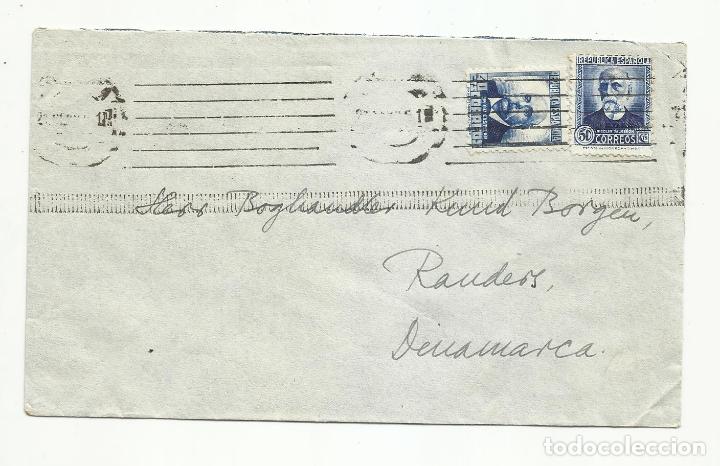 REPUBLICA ESPAÑOLA
50
CORREOS
Herr Boghandler Knud Borgen,
Randers,
Dinamarca.
todocoleccion